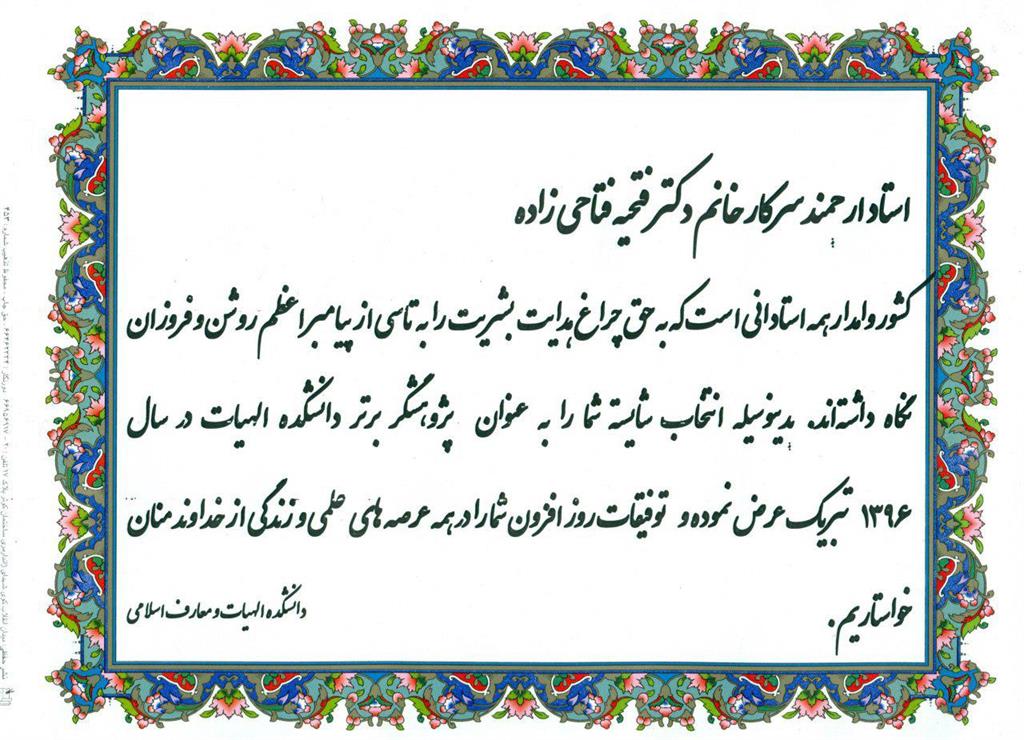 استاد ارجمند سرکار خانم دکتر فتحیه فتاحی زاده
کشور وامدار همه استادانی است که به حق چراغ هدایت بشریت را به تاسی از پیامبر اعظم روشن و فروزان
نگاه داشته‌اند. بدینوسیله انتخاب شایسته شما را به عنوان پژوهشگر برتر دانشکده الهیات در سال
۱۳۹۶ تبریک عرض نموده و توفیقات روز افزون شما را در همه عرصه های علمی و زندگی از خداوند منان
خواستاریم.
دانشکده الهیات و معارف اسلامی